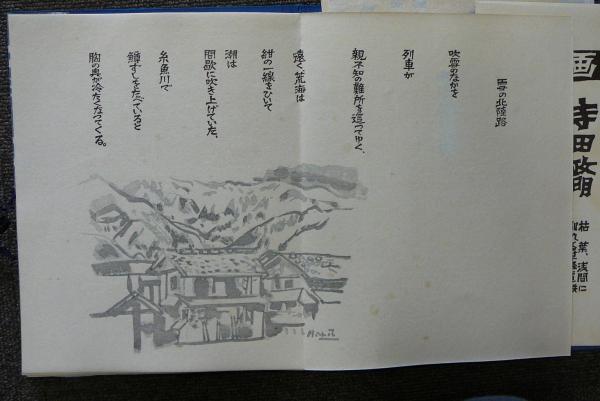 画 寺田政明
枯葉、浅間に
雪の北陸路
吹雪のなかを
列車が
親不知の難所を這ってゆく、
遠く荒海は
紺の一線をひいて
潮は
間歇に吹き上げていた、
糸魚川で
鱒ずしをたべていると
胸の奥が冷たくなってくる。